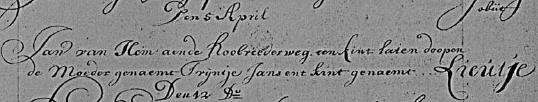 Den 5 April
obiit
Jan van Hom aende Koobrederweg een kint laten doopen
de Moeder genaemt Trijntje Jans ent kint genaemt... Lieutje
Den 12 Do